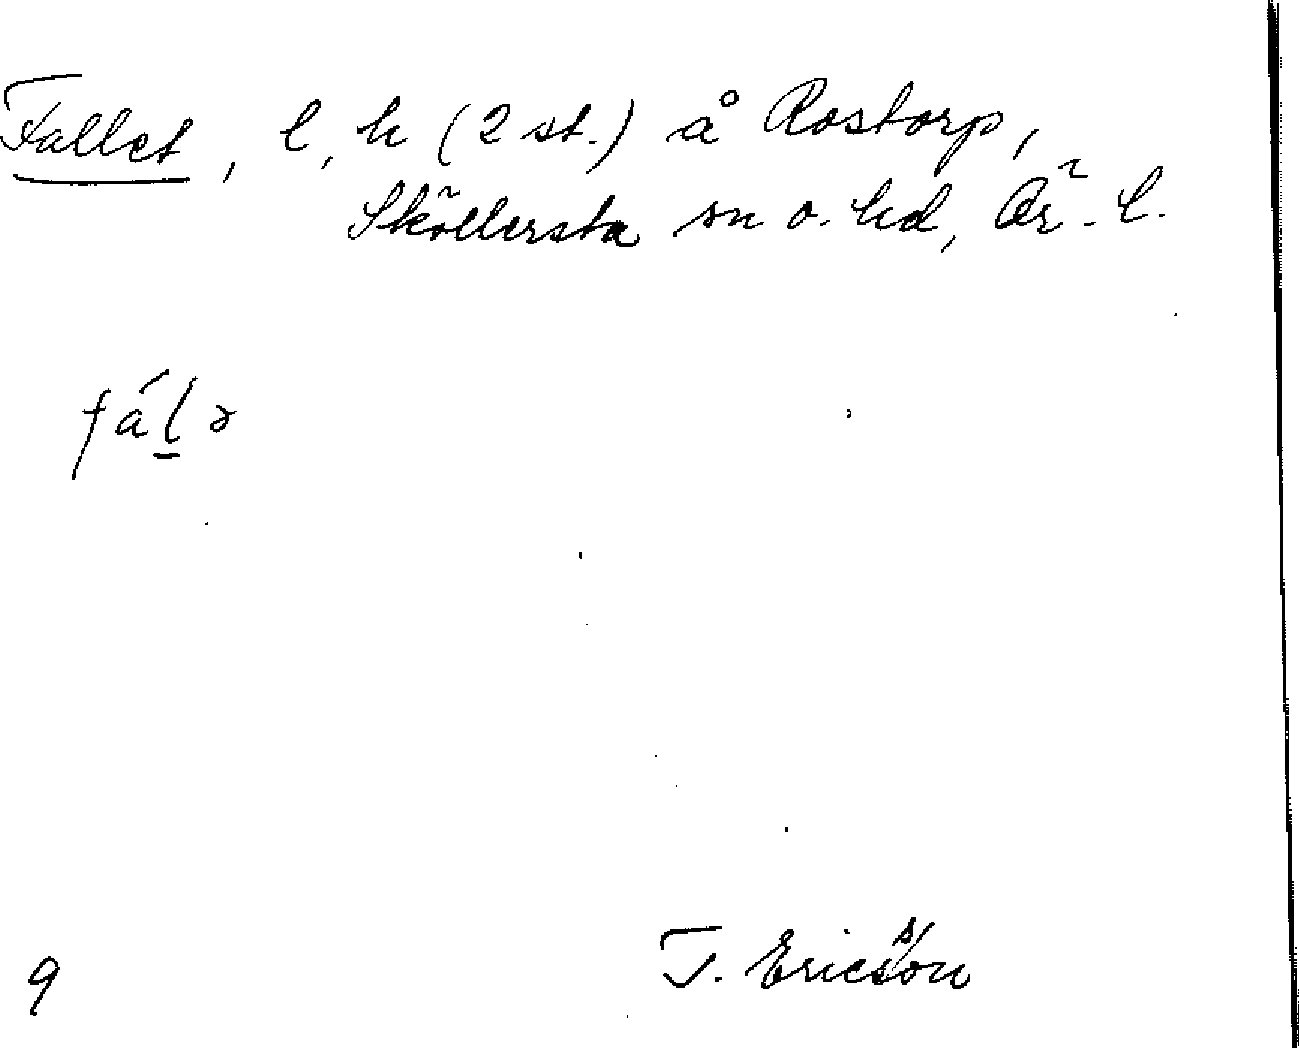 Fallet, l, h (2 st.) å Rostorp,
Sköllersta sn o. hd, Ör. l.
fálə
9
T. Ericsson